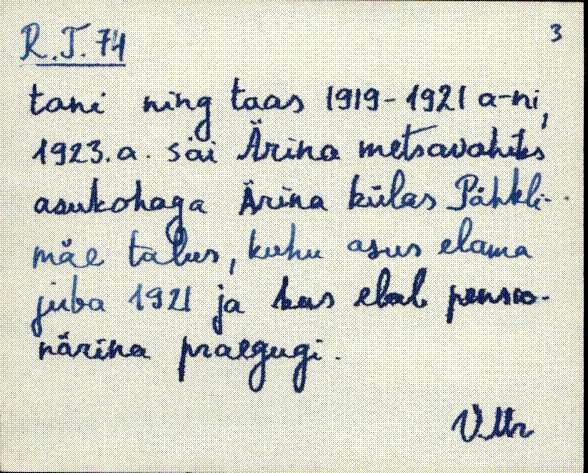 R.T. 74
3
tani ning taas 1919-1921 a-ni,
1923. a. sai Ärina metsavahiks
asukohaga Ärina külas Pähkli-
mäe talus, kuhu asus elama
juba 1921 ja kus elab pensio-
närina praegugi.